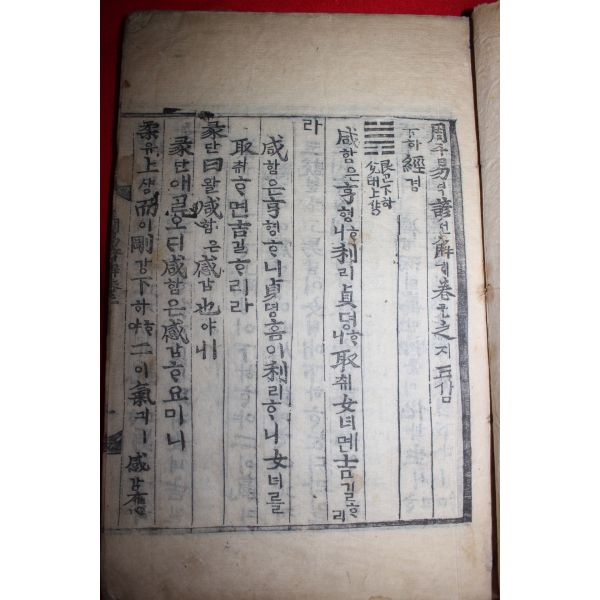 周쥬易역諺언解ᄒᆡ卷권之지三삼
下하經경
艮간下하
兌태上샹
咸함은亨형ᄒᆞ니利리貞뎡ᄒᆞ니取취女녀면吉길ᄒᆞ리
라
咸함은亨형ᄒᆞ니貞뎡흠이利리ᄒᆞ니女녀를
取취ᄒᆞ면吉길ᄒᆞ리라
彖단曰왈咸함은感감也야ㅣ니
彖단애ᄀᆞᆯ오ᄃᆡ咸함은感감ᄒᆞ요미니
柔유上샹而이剛강下하ᄒᆞ야二이氣긔ㅣ感감應